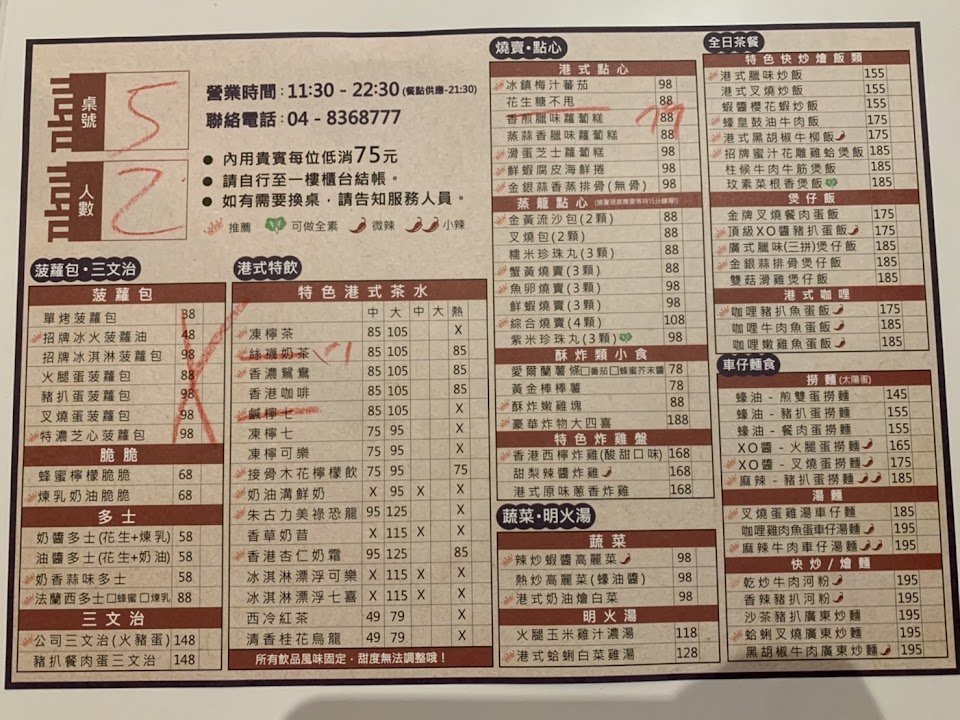 囍
桌號 5
囍
人數 2
營業時間：11:30 - 22:30 (餐點供應-21:30)
聯絡電話：04 - 8368777
● 內用貴賓每位低消75元
● 請自行至一樓櫃台結帳。
● 如有需要換桌，請告知服務人員。
推薦 可做全素 微辣 小辣
菠蘿包·三文治
菠蘿包
單烤菠蘿包 38
招牌冰火菠蘿油 48
招牌冰淇淋菠蘿包 98
火腿蛋菠蘿包 88
豬扒蛋菠蘿包 98
叉燒蛋菠蘿包 98
特濃芝心菠蘿包 98
脆脆
蜂蜜檸檬脆脆 68
煉乳奶油脆脆 68
多士
奶醬多士(花生+煉乳) 58
油醬多士(花生+奶油) 58
奶香蒜味多士 58
法蘭西多士□蜂蜜□煉乳 88
三文治
公司三文治(火豬蛋) 148
豬扒餐肉蛋三文治 148
港式特飲
特色港式茶水
中 大 中 大 熱
凍檸茶 85 105 X
絲襪奶茶 85 105 85
香濃鴛鴦 85 105 85
香港咖啡 85 105 85
鹹檸七 85 105 X
凍檸七 75 95 X
凍檸可樂 75 95 X
接骨木花檸檬飲 75 95 75
奶油溝鮮奶 X 95 X X
朱古力美祿恐龍 95 125 X
香草奶昔 X 115 X X
香港杏仁奶霜 95 125 85
冰淇淋漂浮可樂 X 115 X X
冰淇淋漂浮七喜 X 115 X X
西冷紅茶 49 79 X
清香桂花烏龍 49 79 X
所有飲品風味固定，甜度無法調整哦！
燒賣·點心
港式點心
冰鎮梅汁蕃茄 98
花生糖不甩 88
香煎臘味蘿蔔糕 88
蒸蒜香臘味蘿蔔糕 88
滑蛋芝士蘿蔔糕 98
鮮蝦腐皮海鮮捲 98
金銀蒜香蒸排骨(無骨) 98
蒸籠點心
金黃流沙包(2顆) 88
叉燒包(2顆) 88
糯米珍珠丸(3顆) 88
蟹黃燒賣(3顆) 98
魚卵燒賣(3顆) 98
鮮蝦燒賣(3顆) 98
綜合燒賣(4顆) 108
紫米珍珠丸(3顆) 98
酥炸類小食
愛爾蘭薯條□番茄□蜂蜜芥末醬 78
黃金棒棒薯 78
酥炸嫩雞塊 88
豪華炸物大四喜 188
特色炸雞盤
香港西檸炸雞(酸甜口味) 168
甜梨辣醬炸雞 168
港式原味蔥香炸雞 168
蔬菜·明火湯
蔬菜
辣炒蝦醬高麗菜 98
熱炒高麗菜(蠔油醬) 98
港式奶油燴白菜 98
明火湯
火腿玉米雞汁濃湯 118
港式蛤蜊白菜雞湯 128
全日茶餐
特色快炒燴飯類
港式臘味炒飯 155
港式叉燒炒飯 155
蝦醬櫻花蝦炒飯 155
蠔皇鼓油牛肉飯 175
港式黑胡椒牛柳飯 175
招牌蜜汁花雕雞蛤煲飯 185
柱候牛肉牛筋煲飯 185
玟素菜根香煲飯 185
煲仔飯
金牌叉燒餐肉蛋飯 175
頂級XO醬豬扒蛋飯 175
廣式臘味(三拼)煲仔飯 185
金銀蒜排骨煲仔飯 185
雙菇滑雞煲仔飯 185
港式咖哩
咖哩豬扒魚蛋飯 175
咖哩牛肉魚蛋飯 185
咖哩嫩雞魚蛋飯 185
車仔麵食
撈麵(太陽蛋)
蠔油 - 煎雙蛋撈麵 145
蠔油 - 豬扒蛋撈麵 155
蠔油 - 餐肉蛋撈麵 155
XO醬 - 火腿蛋撈麵 165
XO醬 - 叉燒蛋撈麵 175
麻辣 - 豬扒蛋撈麵 185
湯麵
叉燒蛋雞湯車仔麵 185
咖哩雞肉魚蛋車仔湯麵 195
麻辣牛肉車仔湯麵 195
快炒/燴麵
乾炒牛肉河粉 195
香辣豬扒河粉 195
沙茶豬扒廣東炒麵 195
蛤蜊叉燒廣東炒麵 195
黑胡椒牛肉廣東炒麵 195